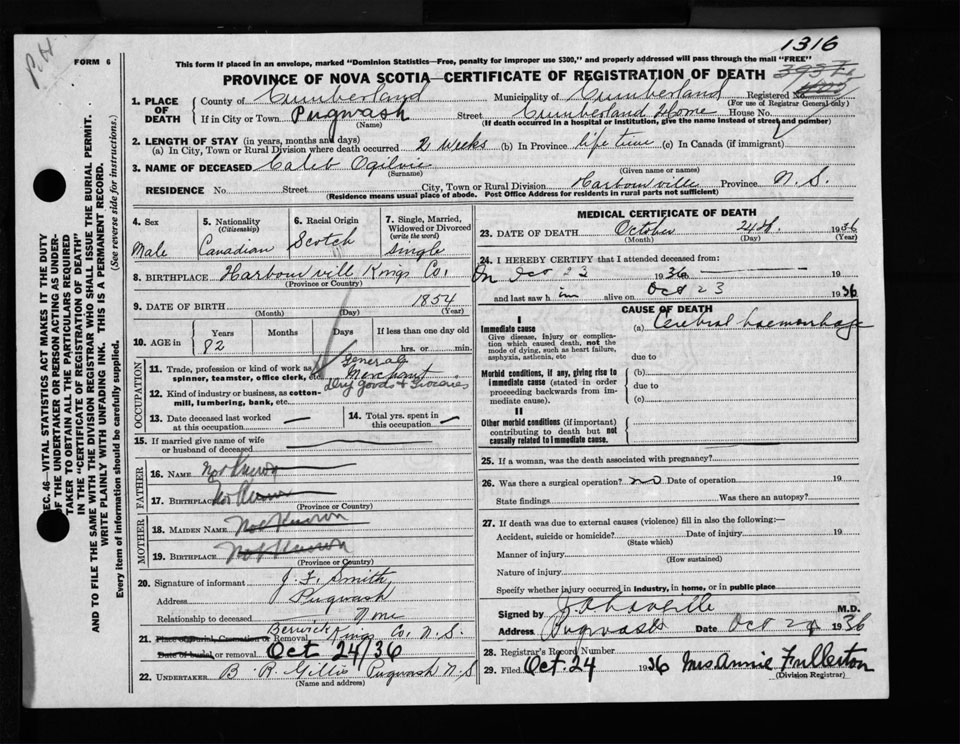 P.H.
1316
FORM 6
This form if placed in an envelope, marked "Dominion Statistics—Free, penalty for improper use $300," and properly addressed will pass through the mail "FREE"
PROVINCE OF NOVA SCOTIA—CERTIFICATE OF REGISTRATION OF DEATH
Registered No.
(For use of Registrar General only)
1. PLACE OF DEATH
County of Cumberland Municipality of Cumberland
If in City or Town Pugwash Street Cumberland Home House No.
(Name) (If death occurred in a hospital or institution, give the name instead of street and number)
2. LENGTH OF STAY (in years, months and days)
(a) In City, Town or Rural Division where death occurred 2 weeks (b) In Province life time (c) In Canada (if immigrant)
3. NAME OF DECEASED Caleb Ogilvie
(Surname) (Given name or names)
RESIDENCE No. Street City, Town or Rural Division Harbourville Province N. S.
(Residence means usual place of abode. Post Office Address for residents in rural parts not sufficient)
4. Sex Male
5. Nationality (Citizenship) Canadian
6. Racial Origin Scotch
7. Single, Married, Widowed or Divorced (write the word) single
8. BIRTHPLACE Harbourville Kings Co.
(Province or Country)
9. DATE OF BIRTH 1854
(Month) (Day) (Year)
10. AGE in Years Months Days If less than one day old
82 hrs. or min.
OCCUPATION
11. Trade, profession or kind of work as spinner, teamster, office clerk, etc. General Merchant
12. Kind of industry or business, as cotton-mill, lumbering, bank, etc. Dry goods + Groceries
13. Date deceased last worked at this occupation
14. Total yrs. spent in this occupation
15. If married give name of wife or husband of deceased
FATHER
16. NAME Not Known
17. BIRTHPLACE Not Known
(Province or Country)
MOTHER
18. MAIDEN NAME Not Known
19. BIRTHPLACE Not Known
(Province or Country)
20. Signature of informant J. F. Smith
Address Pugwash
Relationship to deceased None
21. Place of Burial, Cremation or Removal Berwick Kings Co. N. S.
Date of burial or removal Oct 24/36
22. UNDERTAKER B. R. Gillis Pugwash N.S
(Name and address)
MEDICAL CERTIFICATE OF DEATH
23. DATE OF DEATH October 24th 1936
(Month) (Day) (Year)
24. I HEREBY CERTIFY that I attended deceased from:
On Oct 23 1936 to 19
and last saw him alive on Oct 23 1936
CAUSE OF DEATH
I
Immediate cause (a) Cerebral haemorrhage
Give disease, injury or complication which caused death, not the mode of dying, such as heart failure, asphyxia, asthenia, etc
due to
Morbid conditions, if any, giving rise to immediate cause (stated in order proceeding backwards from immediate cause).
(b)
due to
(c)
II
Other morbid conditions (if important) contributing to death but not causally related to immediate cause.
25. If a woman, was the death associated with pregnancy?
26. Was there a surgical operation? no Date of operation 19
State findings Was there an autopsy?
27. If death was due to external causes (violence) fill in also the following:—
Accident, suicide or homicide? Date of injury 19
(State which)
Manner of injury
(How sustained)
Nature of injury
Specify whether injury occurred in industry, in home, or in public place
Signed by M.D.
Address Pugwash Date Oct 24 1936
28. Registrar's Record Number
29. Filed Oct. 24 1936 Mrs Annie Fullerton
(Division Registrar)
SEC. 46—VITAL STATISTICS ACT MAKES IT THE DUTY OF THE UNDERTAKER OR PERSON ACTING AS UNDERTAKER TO OBTAIN ALL THE PARTICULARS REQUIRED IN THE "CERTIFICATE OF REGISTRATION OF DEATH"
AND TO FILE THE SAME WITH THE DIVISION REGISTRAR WHO SHALL ISSUE THE BURIAL PERMIT.
WRITE PLAINLY WITH UNFADING INK. THIS IS A PERMANENT RECORD.
Every item of information should be carefully supplied. (See reverse side for instructions.)